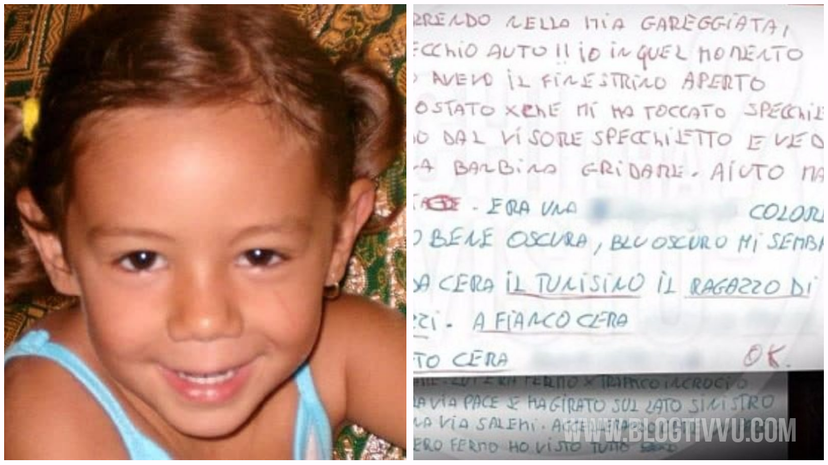 RRENDO NELLA MIA GAREGGIATA,
ECCHIO AUTO !! IO IN QUEL MOMENTO
O AVEVO IL FINESTRINO APERTO
OSTATO XCHE MI HA TOCCATO SPECCHIE
O DAL VISORE SPECCHIETTO E VED
A BAMBINA GRIDARE. AIUTO MA
. ERA UNA COLORE
O BENE OSCURA, BLU OSCURO MI SEMBR
DA CERA IL TUNISINO IL RAGAZZO DI
ZZI. A FIANCO CERA
TO CERA OK.
FERMO X TRAFFICO INCROCIO
LA VIA PACE E HA GIRATO SUL LATO SINISTRO
NA VIA SALEMI.
ERO FERMO HO VISTO TUTTO
WWW.BLOGTIVVU.COM